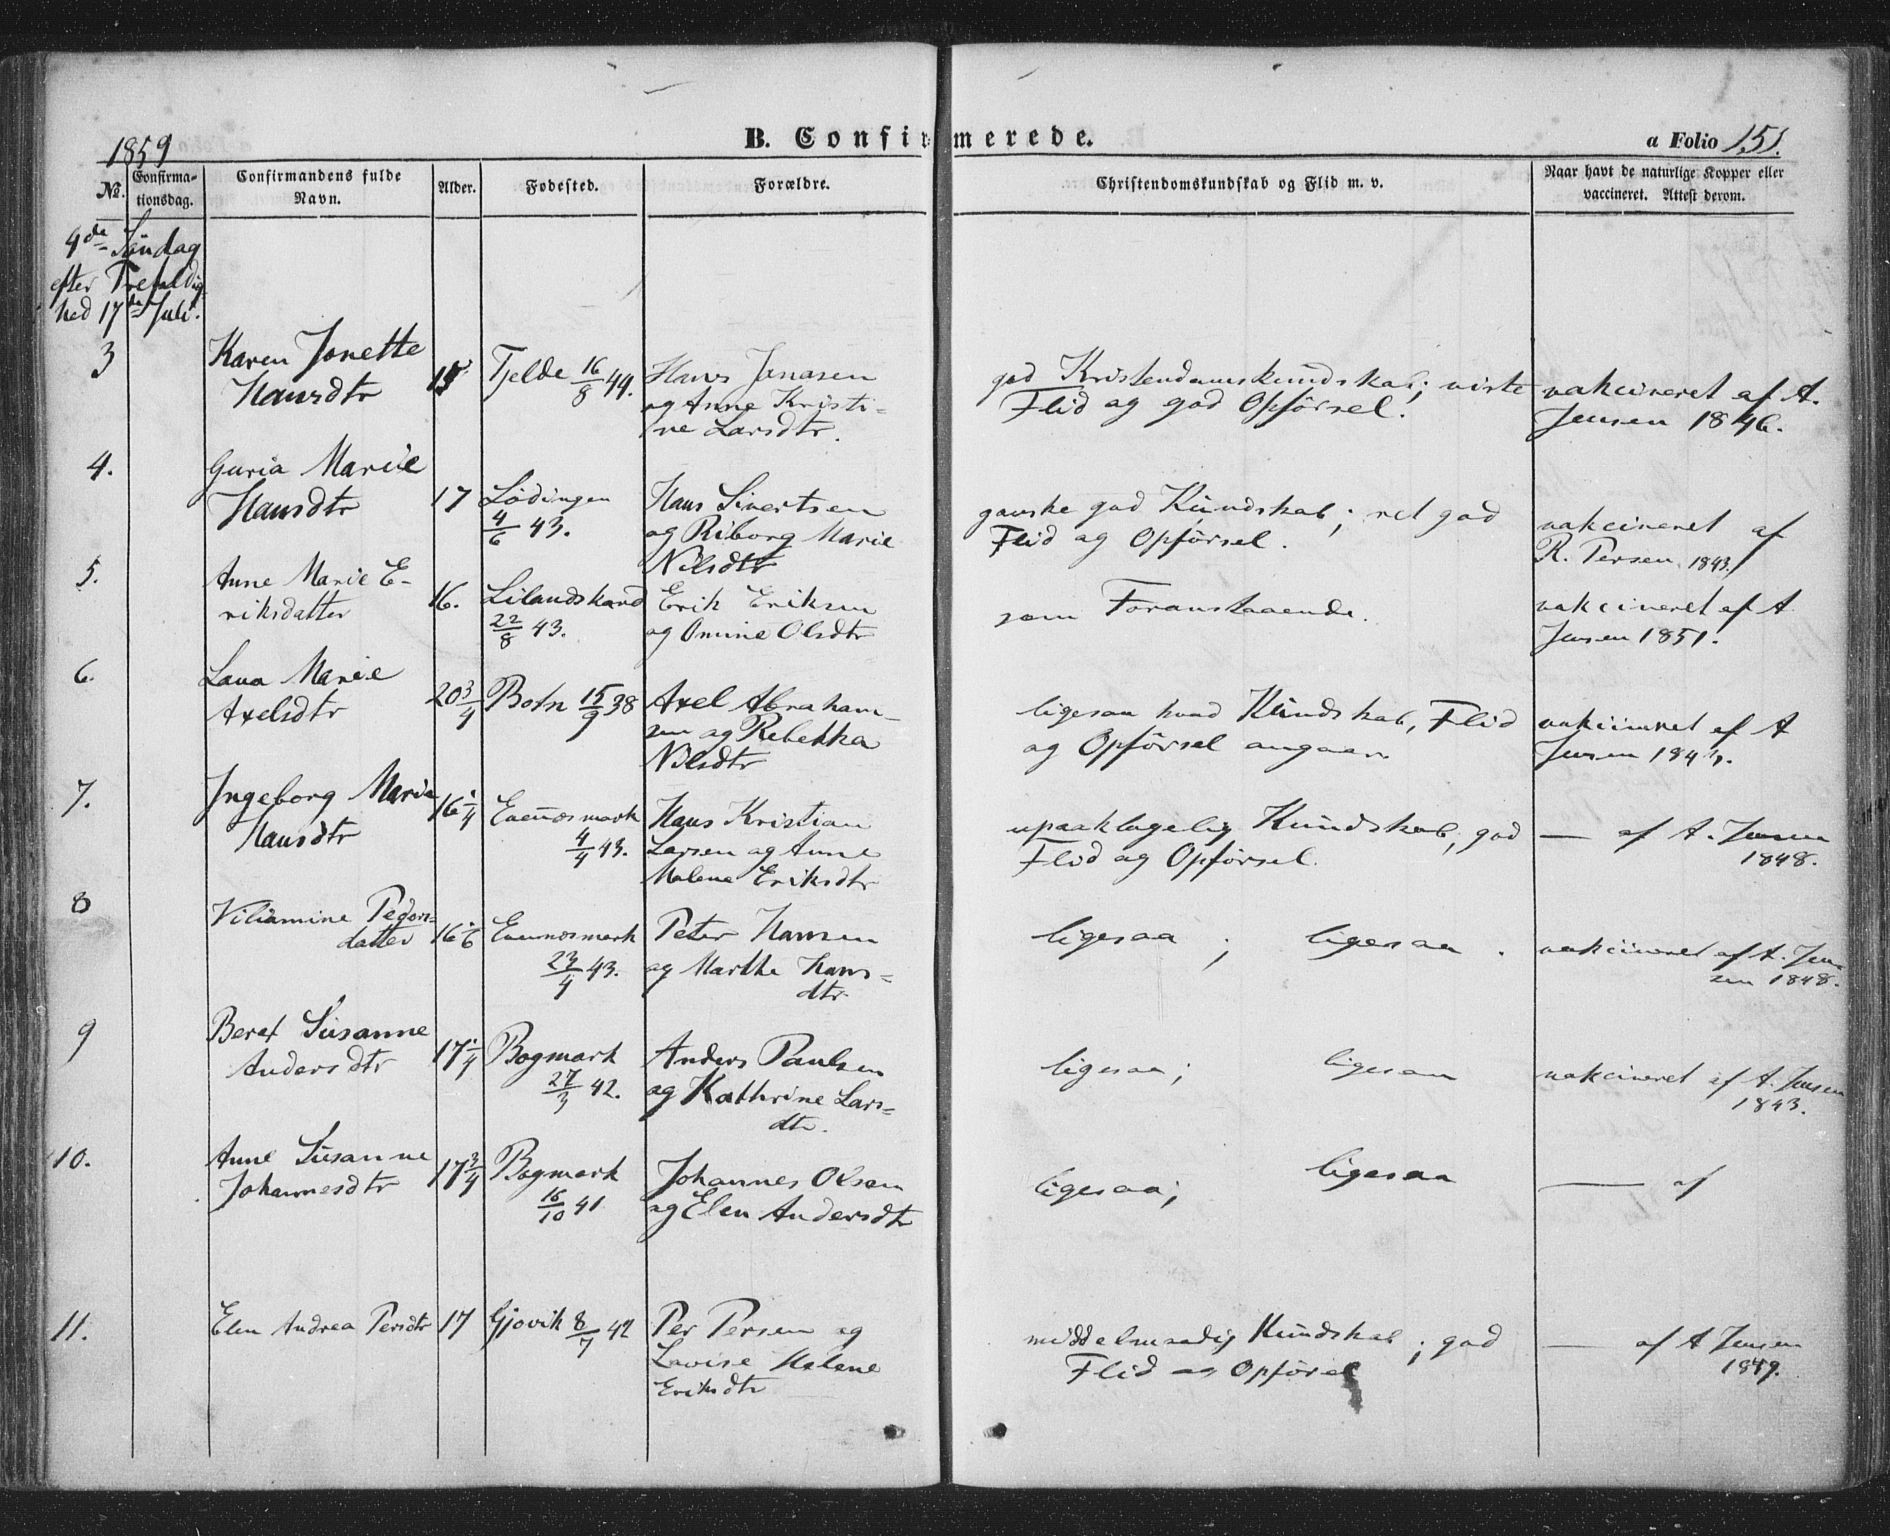 1859
B. Confirmerede.
a Folio 151.
No.
Confirma-
tionsdag.
Confirmandens fulde
Navn.
Alder.
Fødested.
Forældre.
Christendomskundskab og Flid m. v.
Naar havt de naturlige Kopper eller
vaccineret. Attest derom.
4de Søndag
efter Trefoldig
hed 17de Juli.
3 Karen Jonette 15 Tjelde 16/8 44. Hans Jonasen god Kristendomskundskab; viste vakcineret af A.
Hansdtr og Anne Kristi- Flid og god Opførsel. Jensen 1846.
ne Larsdtr.
4. Guria Marie 17 Lødingen Hans Sivertsen ganske god Kundskab; ret god vakcineret af
Hansdtr 4/6 43. og Riborg Marie Flid og Opførsel. R. Persen 1843.
Nilsdtr
5. Anne Marie E- 16. Lilandskard Erik Eriksen som Foranstaaende. vakcineret af A
riksdatter 22/8 43. og Omine Olsdtr Jensen 1851.
6. Lava Marie 20 3/4 Botn 15/9 38 Axel Abraham- ligesaa hvad Kundskab, Flid vakcineret af A
Axelsdtr sen og Rebekka og Opførsel angaar Jensen
Nilsdtr
7. Ingeborg Marie 16 1/4 Evenesmark Hans Kristian upaaklagelig Kundskab, god — af A. Jensen
Hansdtr 4/4 43. Larsen og Anne Flid og Opførsel. 1848.
Malene Eriksdtr
8 Viliamine Peders- 16 1/6 Evenesmark Peter Hansen ligesaa ; ligesaa . vakcineret af A. Jen-
datter 23/4 43. og Marthe Hans- sen 1848.
dtr.
9 Beret Susanne 17 1/4 Bogmark Anders Paulsen ligesaa; ligesaa vakcineret af A. Jensen
Andersdtr 27/3 42. og Kathrine Lars- 1843.
dtr.
10. Anne Susanne 17 3/4 Bogmark Johannes Olsen ligesaa; ligesaa — af
Johannesdtr 16/10 41 og Elen Andersdtr
11. Elen Andrea Persdtr 17 Gjøvik 8/7 42 Per Persen og middelmaadig Kundskab; god — af A Jensen
Lovise Malene Flid og Opførsel 1849.
Eriksdtr